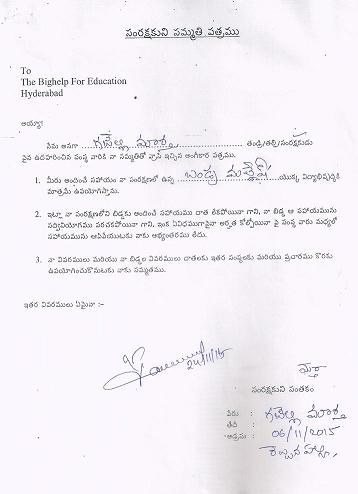 సంరక్షకుని సమ్మతి పత్రము
To
The Bighelp For Education
Hyderabad
అయ్యా!
నేను అనగా ................ తండ్రి/తల్లి/సంరక్షకుడు
పైన ఉదహరించిన సంస్థ వారికి నా సమ్మతితో వ్రాసి ఇచ్చిన అంగీకార పత్రము.
1. మీరు అందించే సహాయం నా సంరక్షణలో ఉన్న ................ యొక్క విద్యాభివృద్ధికి
మాత్రమే ఉపయోగిస్తాను.
2. ఇట్లా నా సంరక్షణలోని బిడ్డకు అందించే సహాయము దాత లేకపోయినా గాని, నా బిడ్డ ఆ సహాయమును
సద్వినియోగము పరచకపోయినా గాని, ఇంక ఏవిధముగానైనా అర్హత కోల్పోయినా పై సంస్థ వారు మధ్యలో
సహాయమును ఆపివేయుటకు నాకు అభ్యంతరము లేదు.
3. నా వివరములు మరియు నా బిడ్డల వివరములు దాతలకు ఇతర సంస్థలకు మరియు ప్రచారము కొరకు
ఉపయోగించుకొనుటకు నాకు సమ్మతము.
ఇతర వివరములు ఏమైనా :-
24/11/15
సంరక్షకుని సంతకం
పేరు :
తేదీ : 06/11/2015
అడ్రసు :